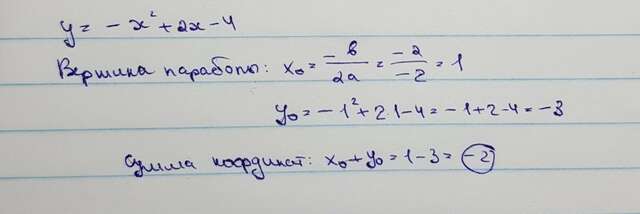 y = - x² + 2x - 4
Вершина параболы: x₀ = -b/2a = -2/-2 = 1
y₀ = - 1² + 2 1 - 4 = - 1 + 2 - 4 = - 3
Сумма координат: x₀ + y₀ = 1 - 3 = -2